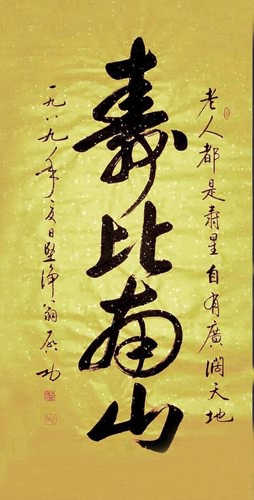 老人都是壽星自有廣闊天地
壽比南山
一九八九年夏日堅淨翁啟功